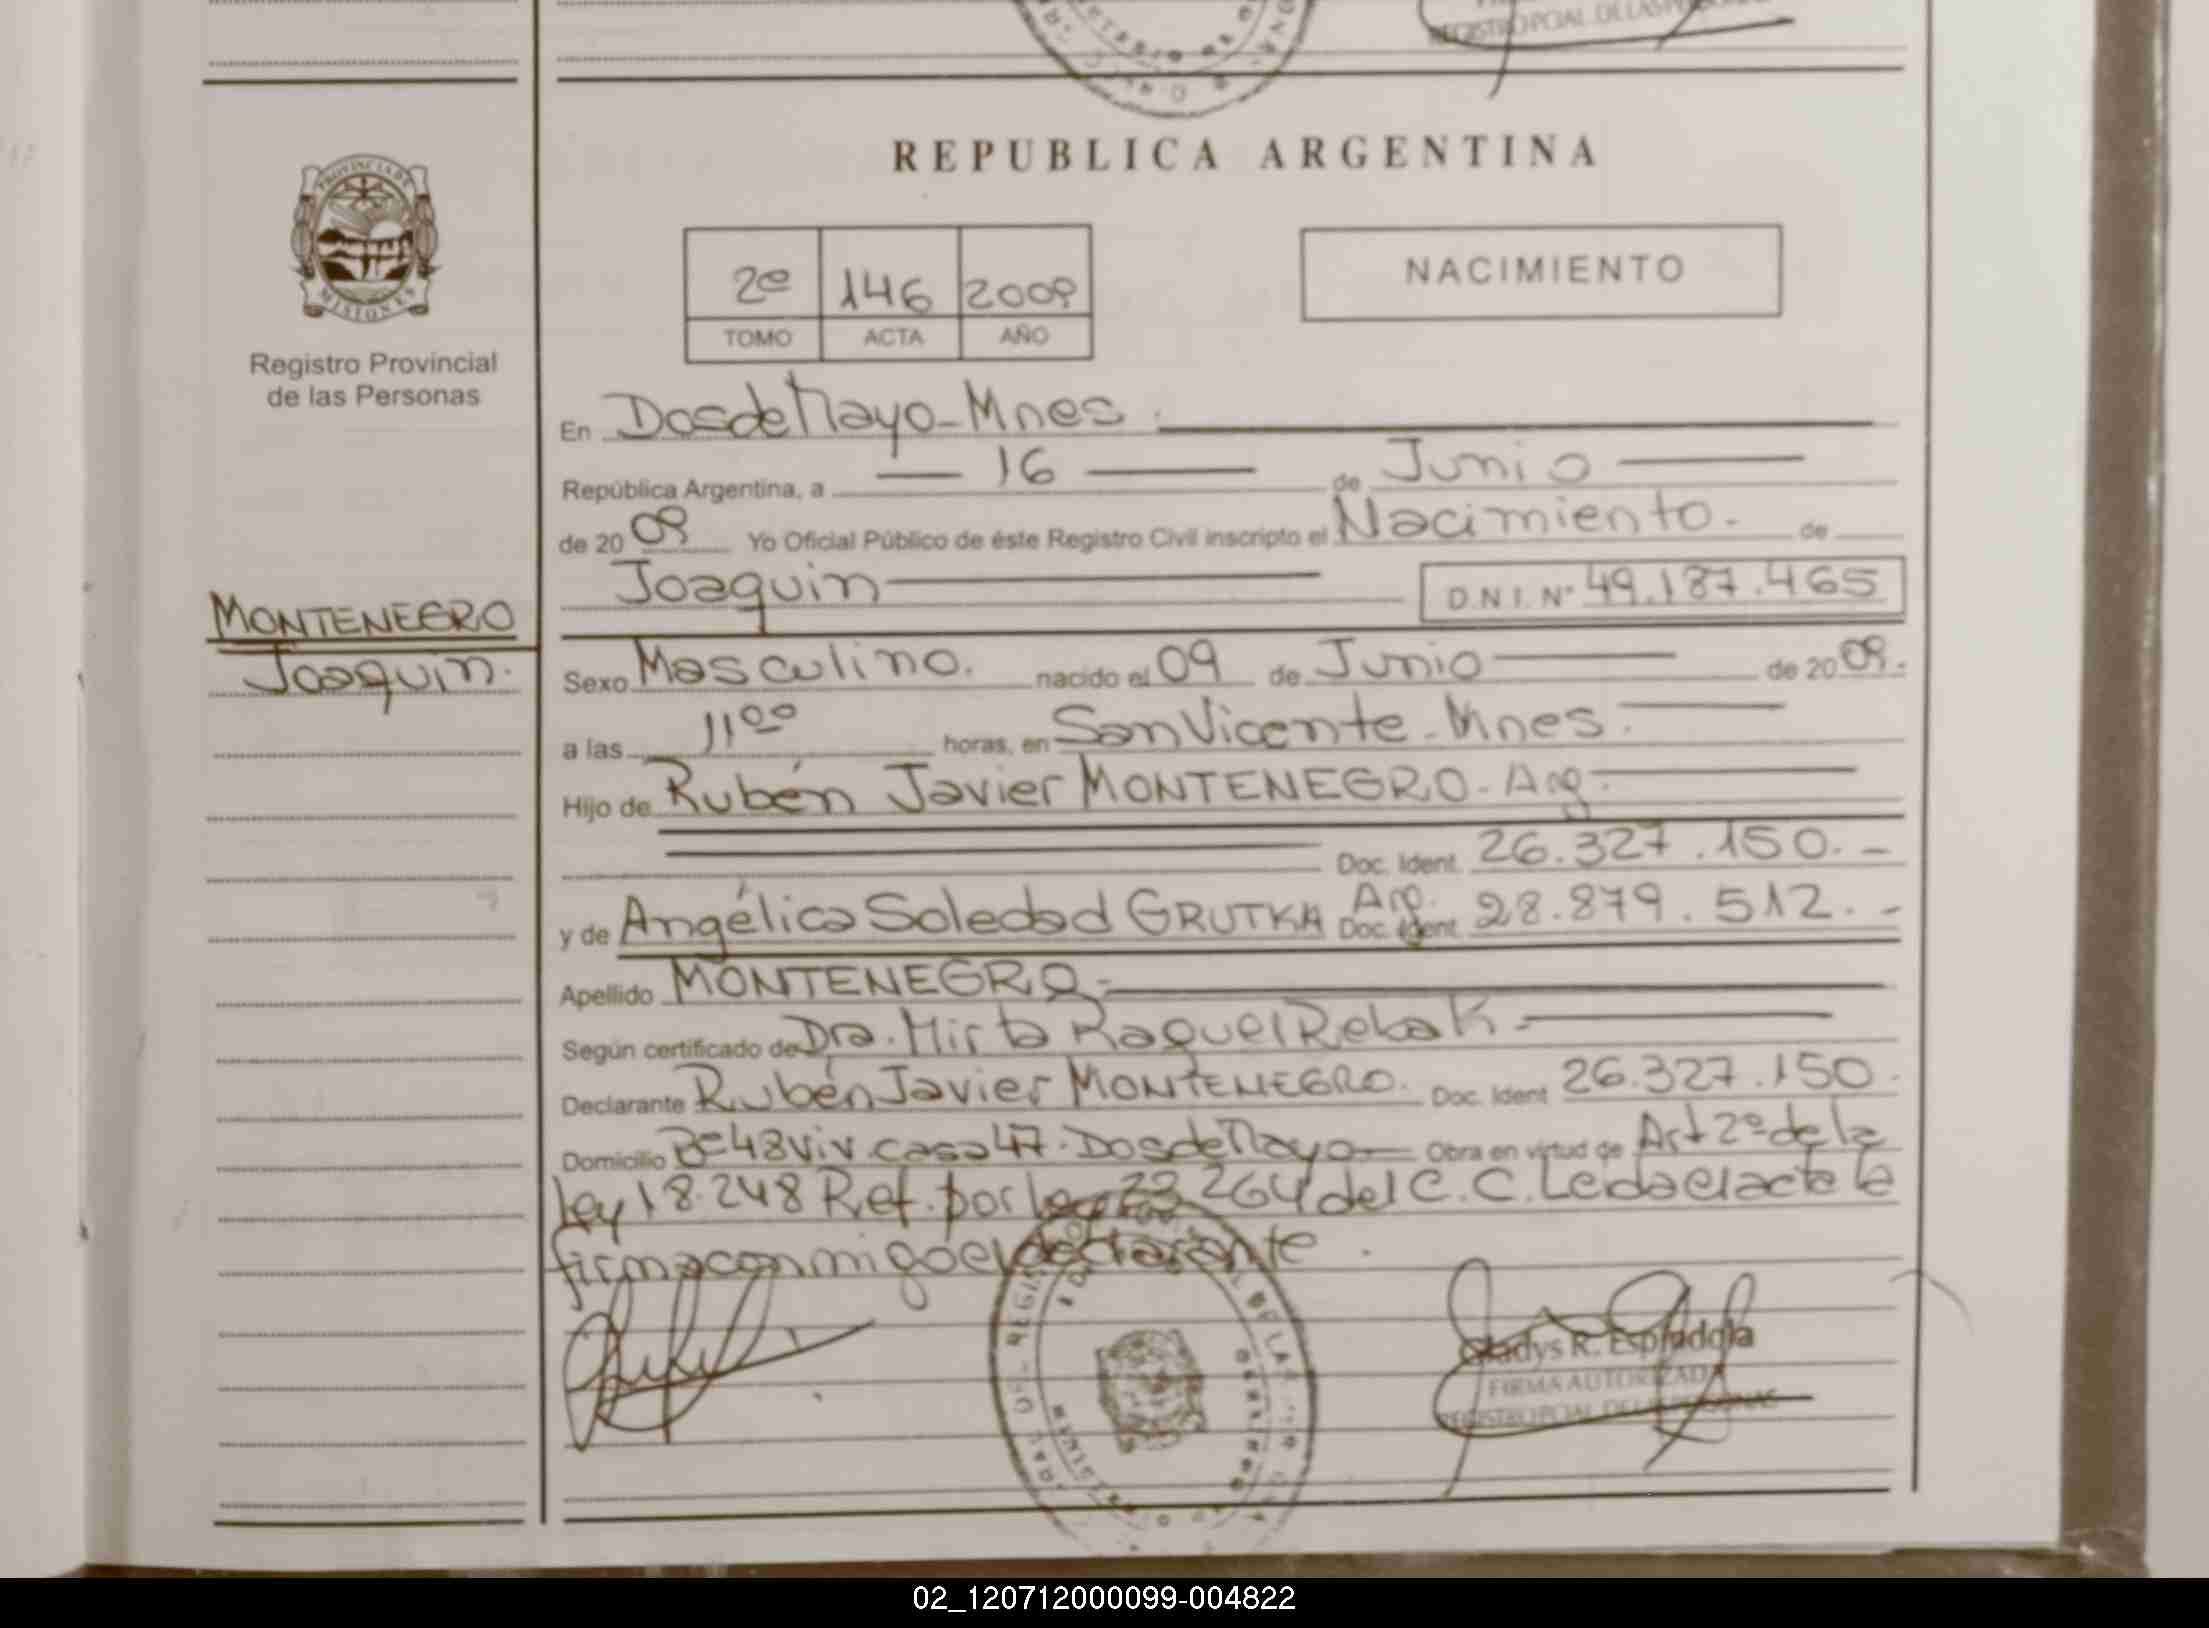 REGISTRO PCIAL. DE LAS
REPUBLICA ARGENTINA
PROVINCIA DE
MISIONES
2º 146 2009
TOMO ACTA AÑO
NACIMIENTO
Registro Provincial
de las Personas
En Dos de Mayo - Mnes.
República Argentina, a 16 de Junio
de 2009 Yo Oficial Público de éste Registro Civil inscripto el Nacimiento. de
Joaquin D.N.I. Nº 49.187.465
MONTENEGRO
Joaquin.
Sexo Masculino. nacido el 09 de Junio de 2009.
a las 11ºº horas, en San Vicente - Mnes.
Hijo de Rubén Javier MONTENEGRO - Arg.
Doc. Ident. 26.327.150. -
y de Angélica Soledad GRUTKA Arg. Doc. Ident. 28.879.512. -
Apellido MONTENEGRO. -
Según certificado de Dra. Mirta Raquel Rebak. -
Declarante Rubén Javier MONTENEGRO. Doc. Ident 26.327.150.
Domicilio Bº 48 viv. casa 47. Dos de Mayo Obra en virtud de Art 2º de la
Ley 18.248 Ref. por Ley 23 264 del C.C. Leida el acta la
firma conmigo el declarante.
Gladys R. Espindola
FIRMA AUTORIZADA
REGISTRO PCIAL. DE LAS PERSONAS
02_120712000099-004822